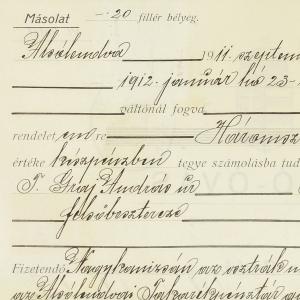 Másolat – 20 fillér bélyeg.
Alsólendva 1911 szeptem
1912 – január hó 23–
váltónál fogva
rendelet em re Háromsz
értéke készpénzben tegye számolásba tud
T. Graj András úr
felsőbesztercze
Fizetendő Nagykanizsán az osztrák m
az Alsólendvai Takarékpénztár